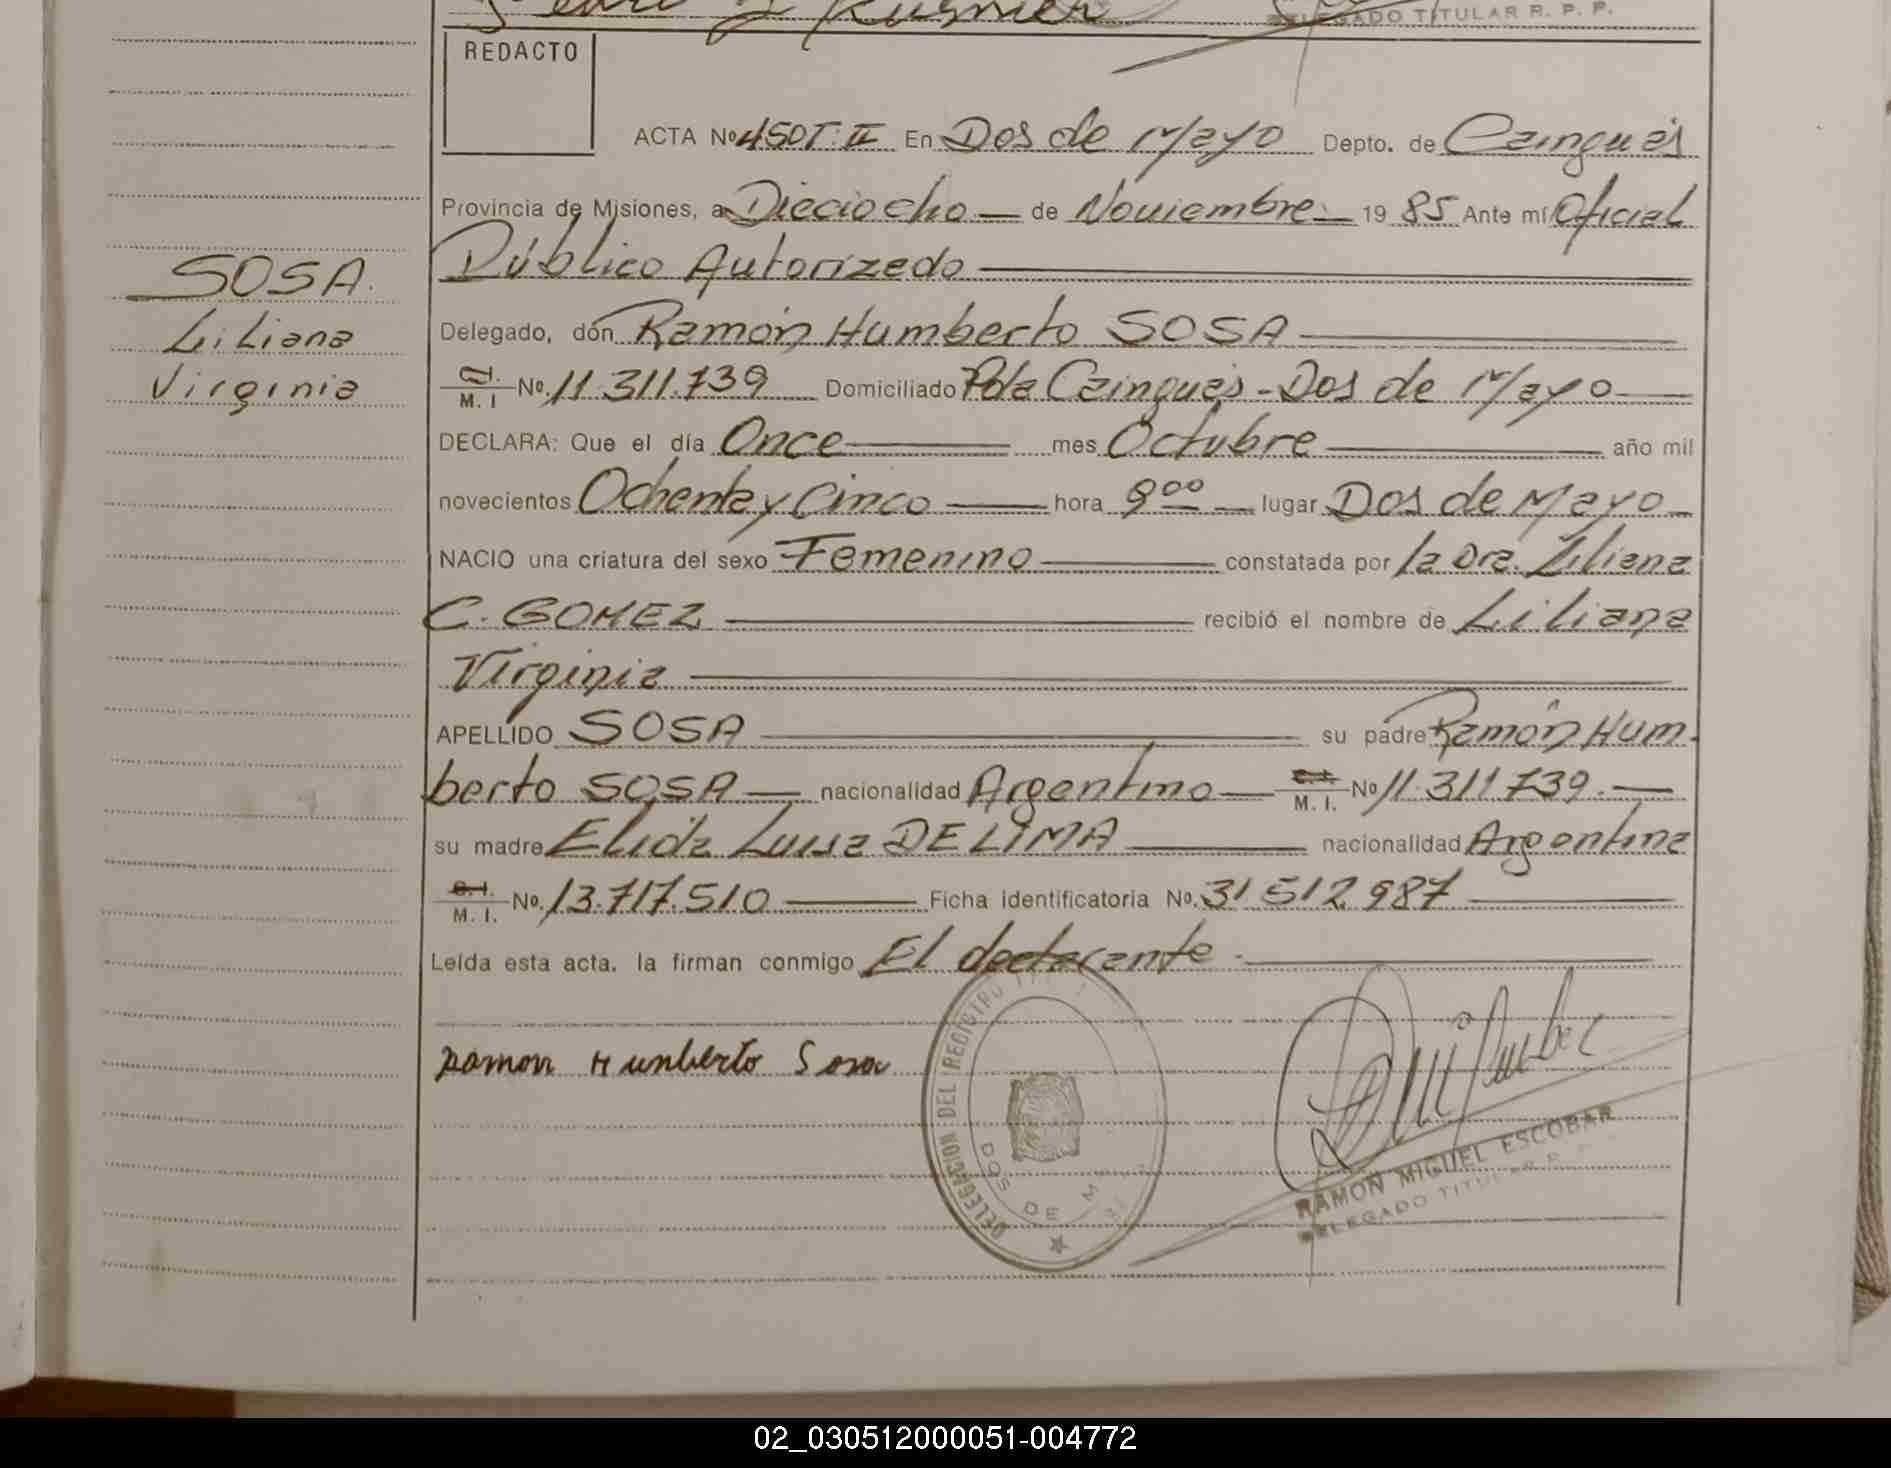 DELEGADO TITULAR R. P. P.
REDACTO
ACTA Nº 450 T: II En Dos de Mayo Depto. de Caingúas
Provincia de Misiones, a Dieciocho — de Noviembre — 19 85 Ante mí Oficial
Público Autorizado
SOSA.
Liliana
Virginia
Delegado, don Ramón Humberto SOSA
C.I. M. I Nº. 11.311.739 Domiciliado Pda Caingúas - Dos de Mayo
DECLARA: Que el día Once mes Octubre año mil
novecientos Ochenta y Cinco hora 9 00 lugar Dos de Mayo
NACIO una criatura del sexo Femenino constatada por la Dra. Liliana
C. GOMEZ recibió el nombre de Liliana
Virginia
APELLIDO SOSA su padre Ramón Hum-
berto SOSA nacionalidad Argentino C.I. M. I. Nº 11.311.739.
su madre Elida Luisa DE LIMA nacionalidad Argentina
C.I. M. I. Nº. 13.717.510 Ficha identificatoria Nº. 31 512 987
Leída esta acta, la firman conmigo El declarante.
Ramon Humberto Sosa
DELEGACION DEL REGISTRO
DOS DE
RAMON MIGUEL ESCOBAR
DELEGADO TITULAR R. P.
02_030512000051-004772